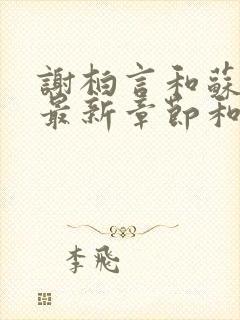 謝柏言和蘇
最新章節和
李飛